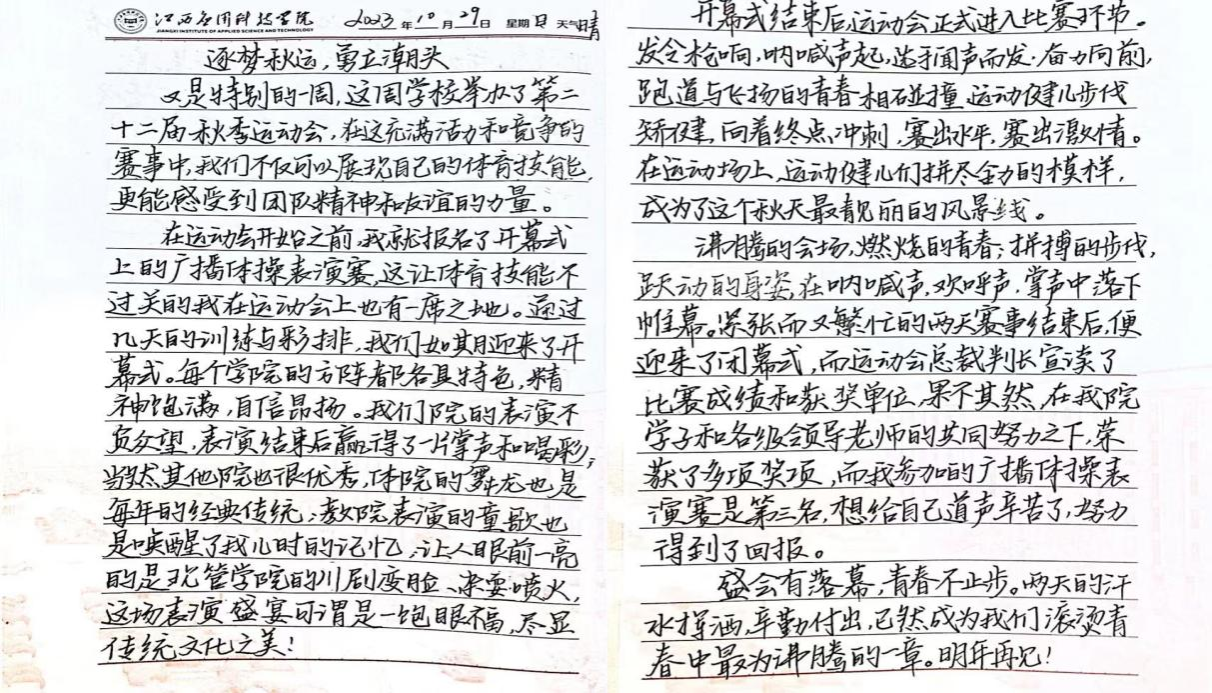 江西应用科技学院 2023年10月29日 星期日 天气晴
JIANGXI INSTITUTE OF APPLIED SCIENCE AND TECHNOLOGY
逐梦秋运,勇立潮头
又是特别的一周,这周学校举办了第二
十二届秋季运动会,在这充满活力和竞争的
赛事中,我们不仅可以展现自己的体育技能,
更能感受到团队精神和友谊的力量。
在运动会开始之前,我就报名了开幕式
上的广播体操表演赛,这让体育技能不
过关的我在运动会上也有一席之地。通过
几天的训练与彩排,我们如期迎来了开
幕式。每个学院的方阵都各具特色,精
神饱满,自信昂扬。我们院的表演不
负众望,表演结束后赢得了一片掌声和喝彩,
当然其他院也很优秀,体院的舞龙也是
每年的经典传统,教院表演的童歌也
是唤醒了我儿时的记忆,让人眼前一亮
的是现管学院的川剧变脸、杂耍喷火,
这场表演盛宴可谓是一饱眼福,尽显
传统文化之美!
开幕式结束后,运动会正式进入比赛环节。
发令枪响,呐喊声起,选手闻声而发,奋力向前,
跑道与飞扬的青春相碰撞,运动健儿步伐
矫健,向着终点冲刺,赛出水平,赛出激情。
在运动场上,运动健儿们拼尽全力的模样,
成为了这个秋天最靓丽的风景线。
沸腾的会场,燃烧的青春;拼搏的步伐,
跃动的身姿,在呐喊声,欢呼声,掌声中落下
帷幕。紧张而又繁忙的两天赛事结束后,便
迎来了闭幕式,而运动会总裁判长宣读了
比赛成绩和获奖单位,果不其然,在我院
学子和各级领导老师的共同努力之下,荣
获了多项奖项,而我参加的广播体操表
演赛是第三名,想给自己道声辛苦了,努力
得到了回报。
盛会有落幕,青春不止步。两天的汗
水挥洒,辛勤付出,已然成为我们滚烫青
春中最为沸腾的一章。明年再见!